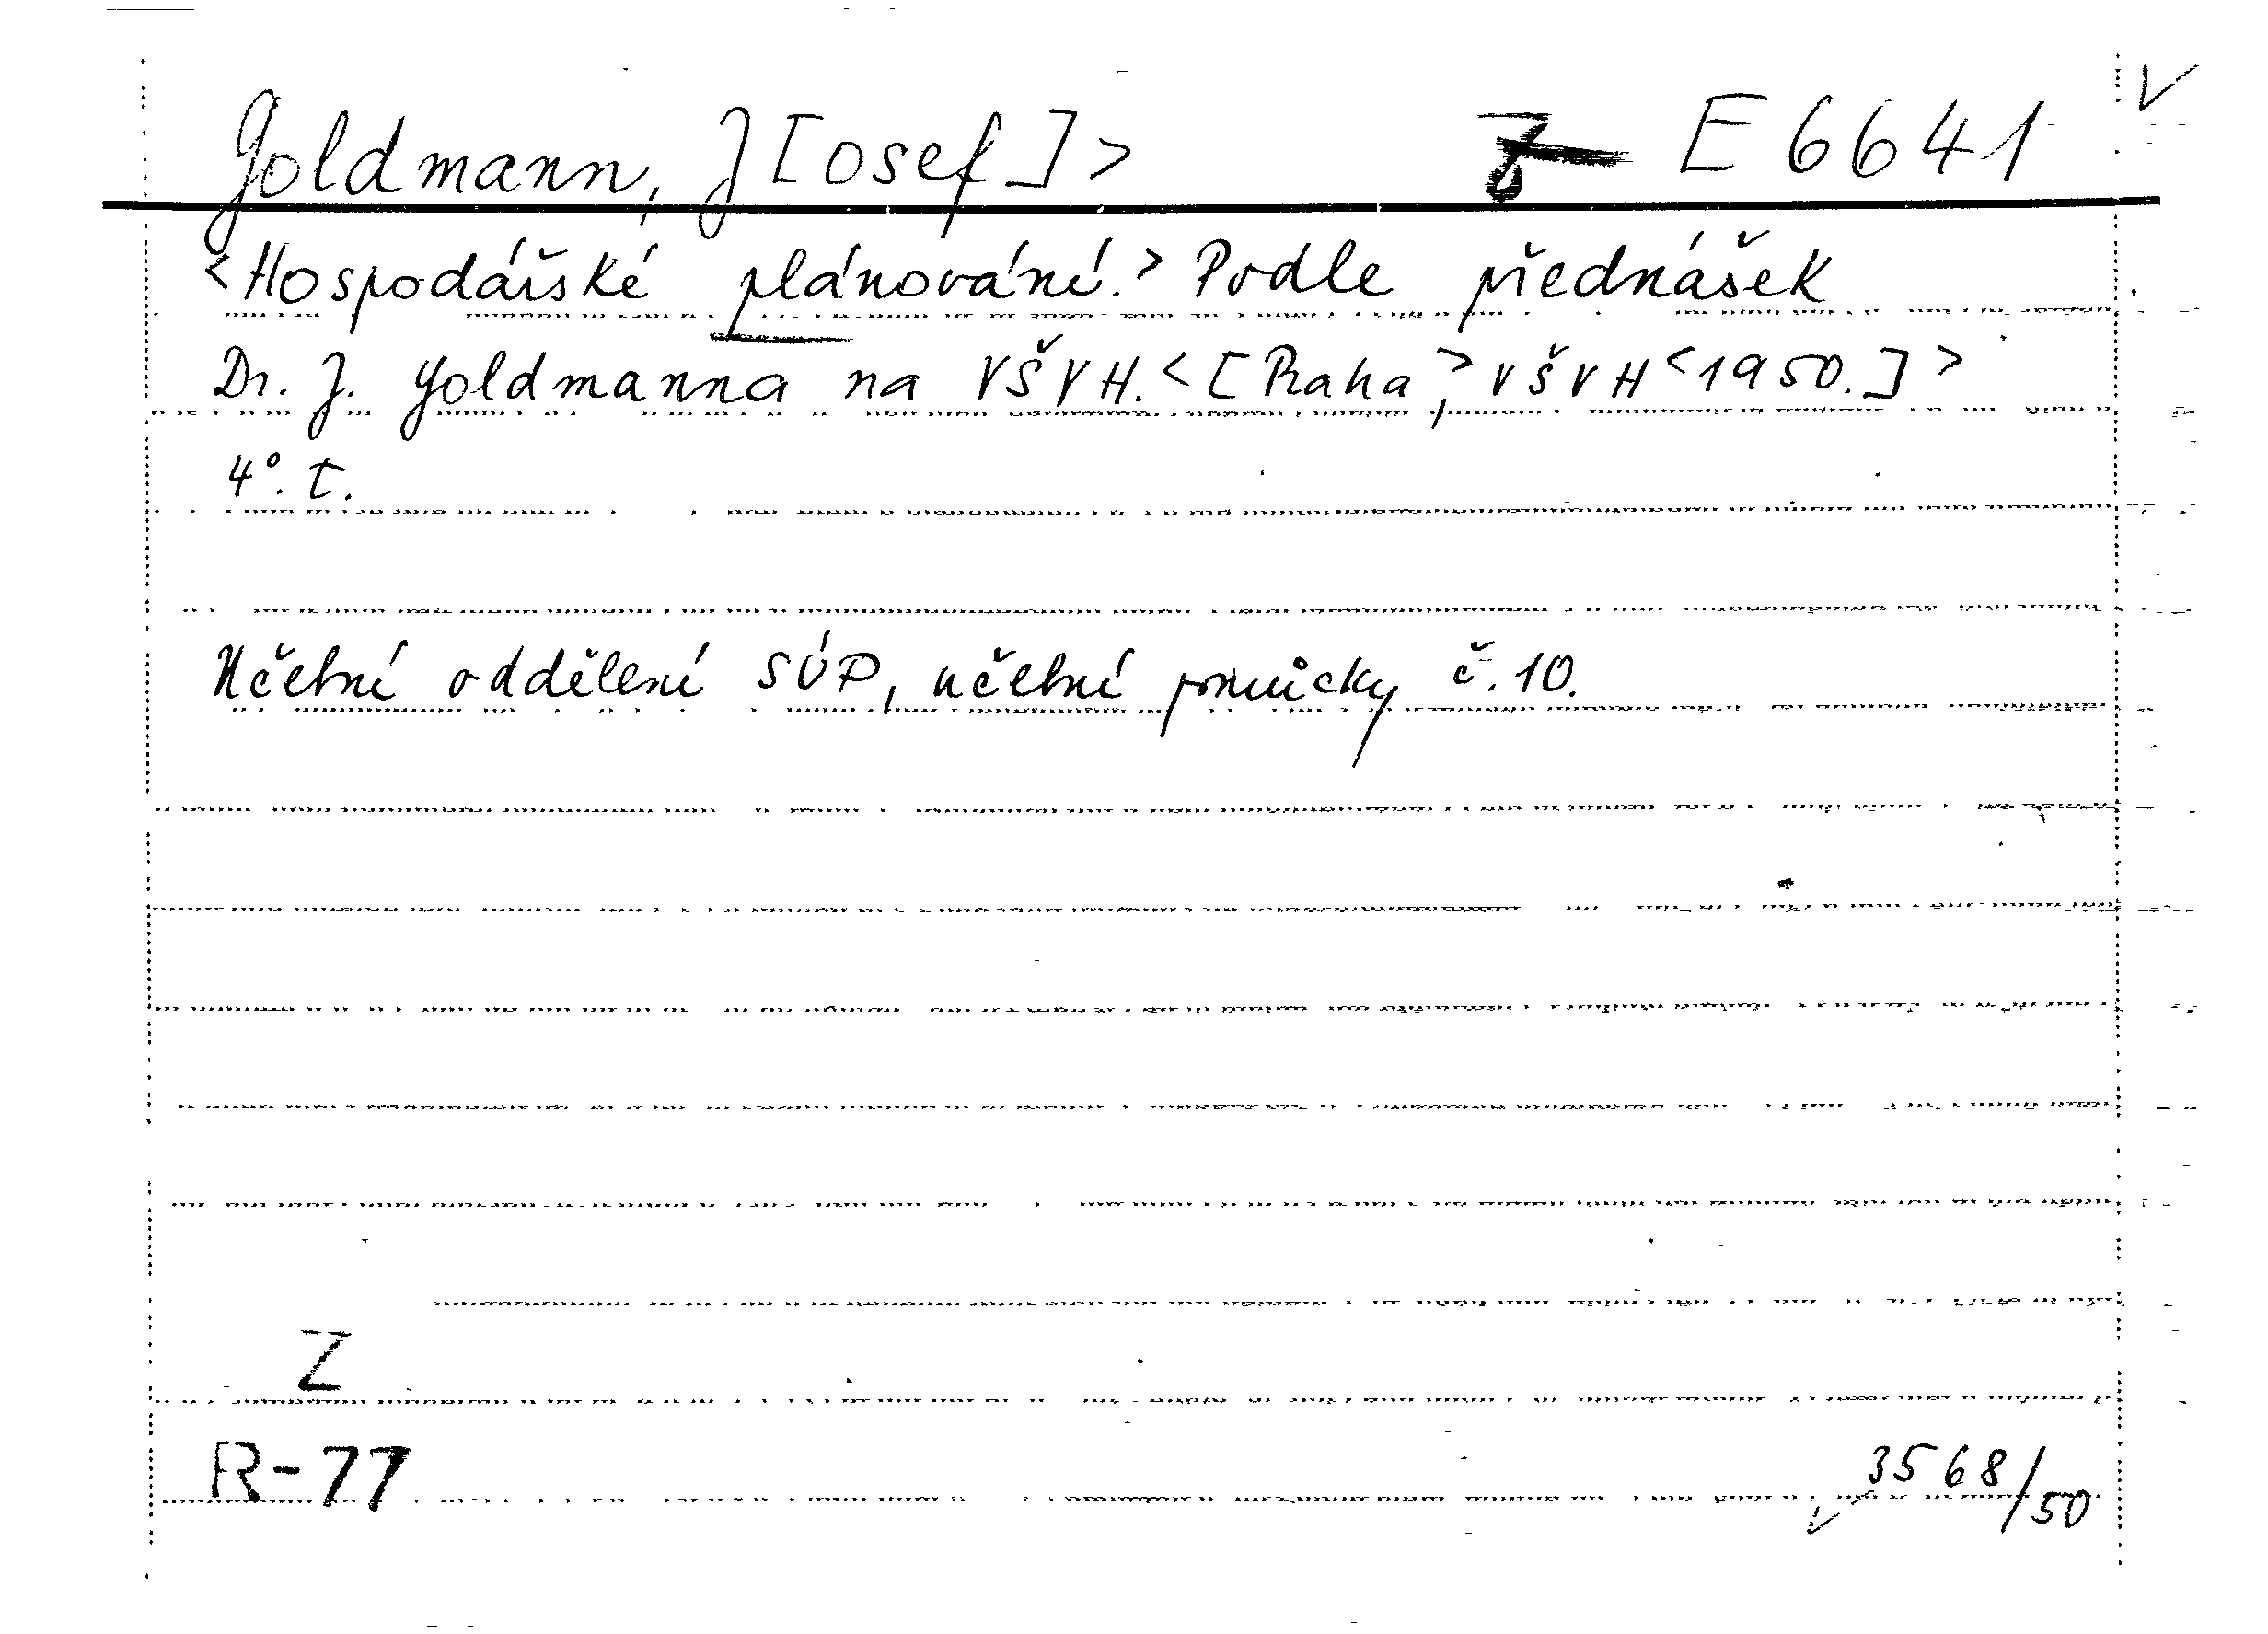 Goldmann, J[osef]> E 6641
<Hospodářské plánování.> Podle přednášek
Dr. J. Goldmanna na VŠVH. <[Praha,> VŠVH <1950.]>
4°. T.
Učební oddělení SÚP, učební pomůcky č. 10.
Z
R-77 3568/50